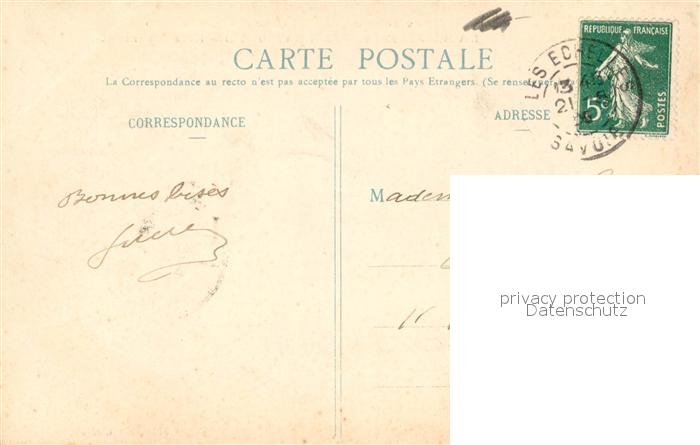 CARTE POSTALE
La Correspondance au recto n'est pas acceptée par tous les Pays Etrangers. (Se rense
CORRESPONDANCE
ADRESSE
REPUBLIQUE FRANÇAISE
5c
POSTES
LES ECHELLES
13
21
SAVOIE
Bonnes bises
Madem
privacy protection
Datenschutz